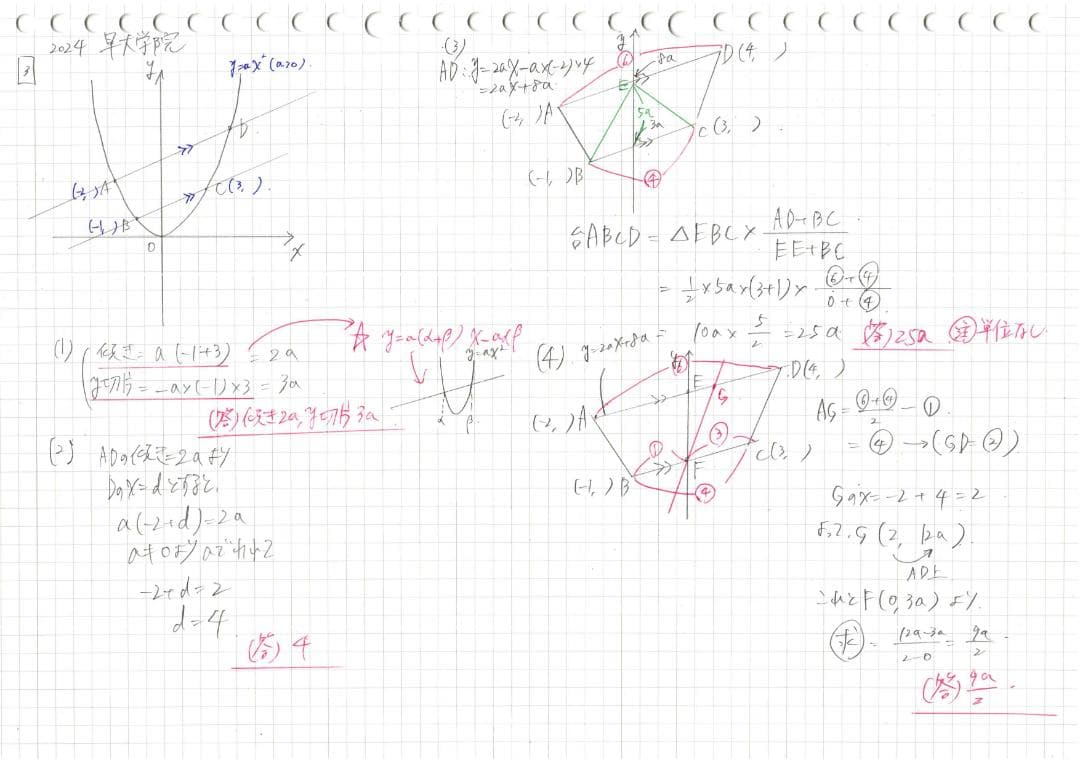 2024 早大学院
3
y
y=ax²(a>0)
D
(-2, )A
C(3, )
(-1, )B
O
x
(1)
傾き= a(-1+3) = 2a
y切片= -a×(-1)×3 = 3a
☆ y=a(α+β)x-aαβ
y=ax²
α β
(答)傾き2a, y切片3a
(2) ADの傾き=2aより
Dのx=dとすると,
a(-2+d)=2a
a≠0よりaでわって
-2+d=2
d=4
(答) 4
(3)
AD:y=2ax-a×(-2)×4
=2ax+8a
y
⑥
8a
D(4, )
E
(-2, )A
5a
3a
C(3, )
(-1, )B
④
台ABCD = △EBC× AD+BC / EE+BC
= 1/2 ×5a×(3+1)× ⑥+④ / 0+④
= 10a× 5/2 =25a (答)25a 注 単位なし
(4) y=2ax+8a
y
⑥
D(4, )
E
G
(-2, )A
① ③
C(3, )
F
(-1, )B
④
AG= ⑥+④ / 2 - ①
= ④ →(GD=②)
Gのx=-2+4=2
よって, G(2, 12a)
AD上
これとF(0,3a)より,
求 = 12a-3a / 2-0 = 9a / 2
(答) 9a / 2